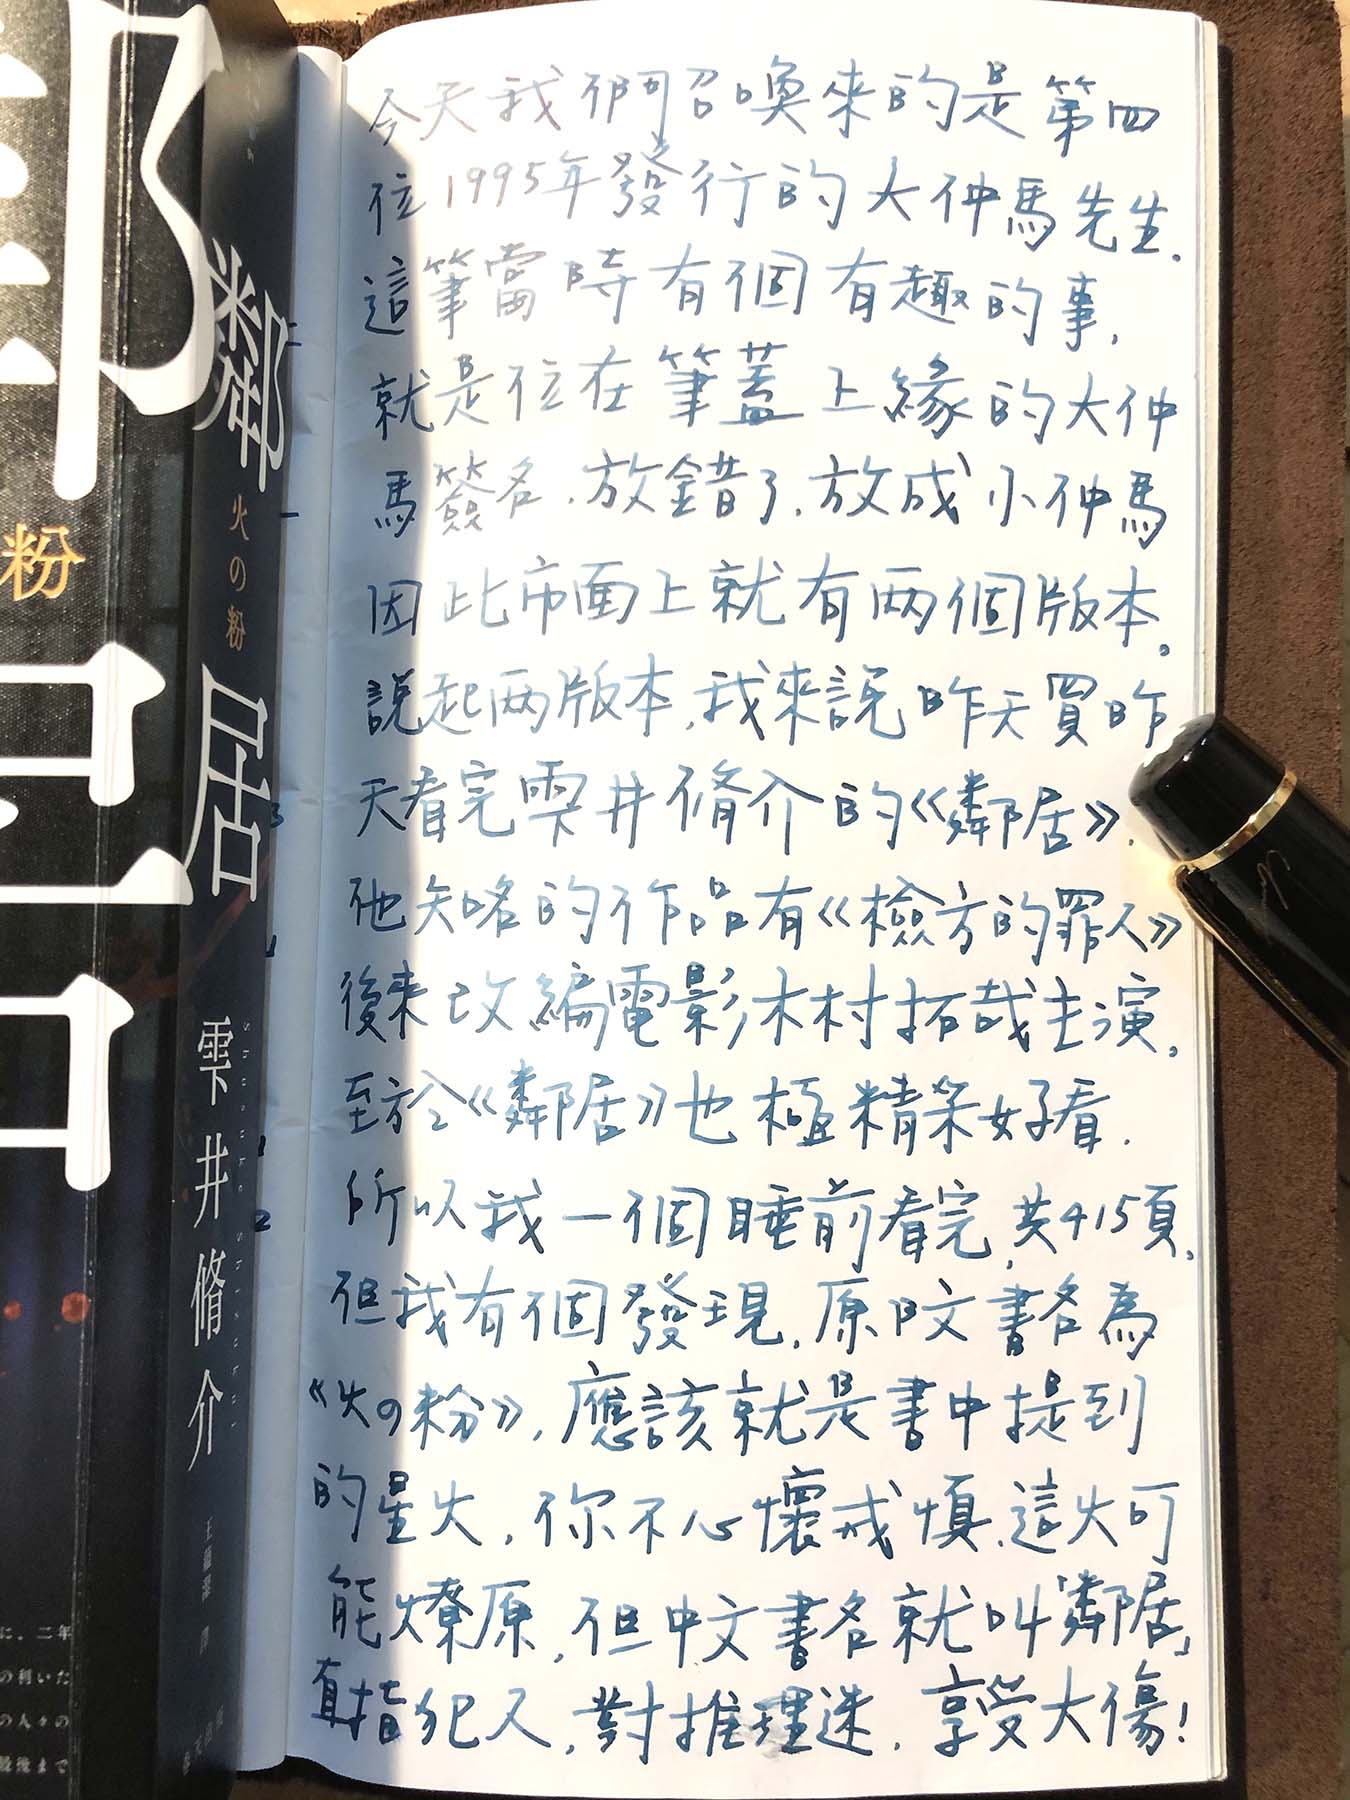 鄰
居
粉
に、二年
の利いた
の人々の
最後まで
鄰
火の粉
居
雫井脩介
Shusuke Shizukui
今天我們召喚來的是第四
位1995年發行的大仲馬先生.
這筆當時有個有趣的事,
就是位在筆蓋上緣的大仲
馬簽名,放錯了,放成小仲馬
因此市面上就有兩個版本。
說起两版本,我來說昨天買昨
天看完雫井脩介的《鄰居》.
他知名的作品有《檢方的罪人》
後來改編電影木村拓哉主演。
至於《鄰居》也極精采好看.
所以我一個睡前看完,共415頁,
但我有個發現,原日文書名為
《火の粉》,應該就是書中提到
的星火,你不心懷戒慎,這火可
能燎原,但中文書名就叫「鄰居」
直指犯人,對推理迷,享受大傷!